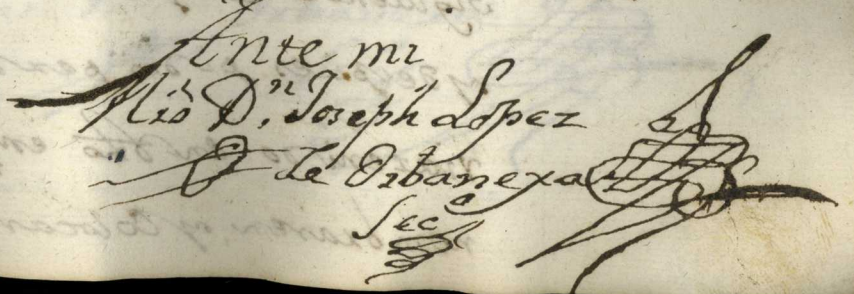 Ante mi
D.ⁿ Joseph Lopez
de Orbanexa
Secº